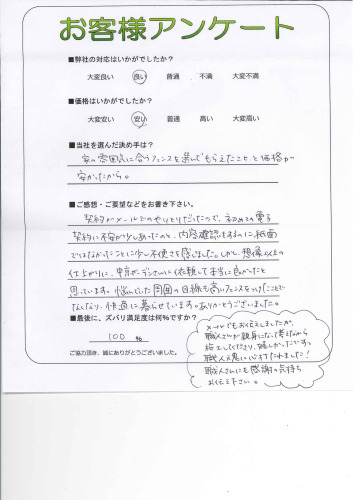 お客様アンケート
■弊社の対応はいかがでしたか?
大変良い 良い 普通 不満 大変不満
■価格はいかがでしたか?
大変安い 安い 普通 高い 大変高い
■当社を選んだ決め手は?
家の雰囲気に合うフェンスを選んでもらえたことと価格が
安かったから。
■ご感想・ご要望などをお書き下さい。
契約がメールでのやりとりだったので、初めての電子
契約に不安が少しあったのと、内容確認をするのに紙面
ではなかったことに少し不便さを感じました。しかし、想像以上の
仕上がりに、東京ガーデンさんに依頼して本当に良かったと
思っています。悩んでいた周囲の目線も高いフェンスをつけたことで
なくなり、快適に暮らせています。ありがとうございました。
■最後に、ズバリ満足度は何%ですか?
100 %
ご協力頂き、誠にありがとうございました。
メールでもお伝えしましたが、
職人さんが親身になって考えながら
施工してくださり、嬉しかったです。
職人気質に心打たれました!
職人さんにも感謝の気持ち
お伝え下さい。